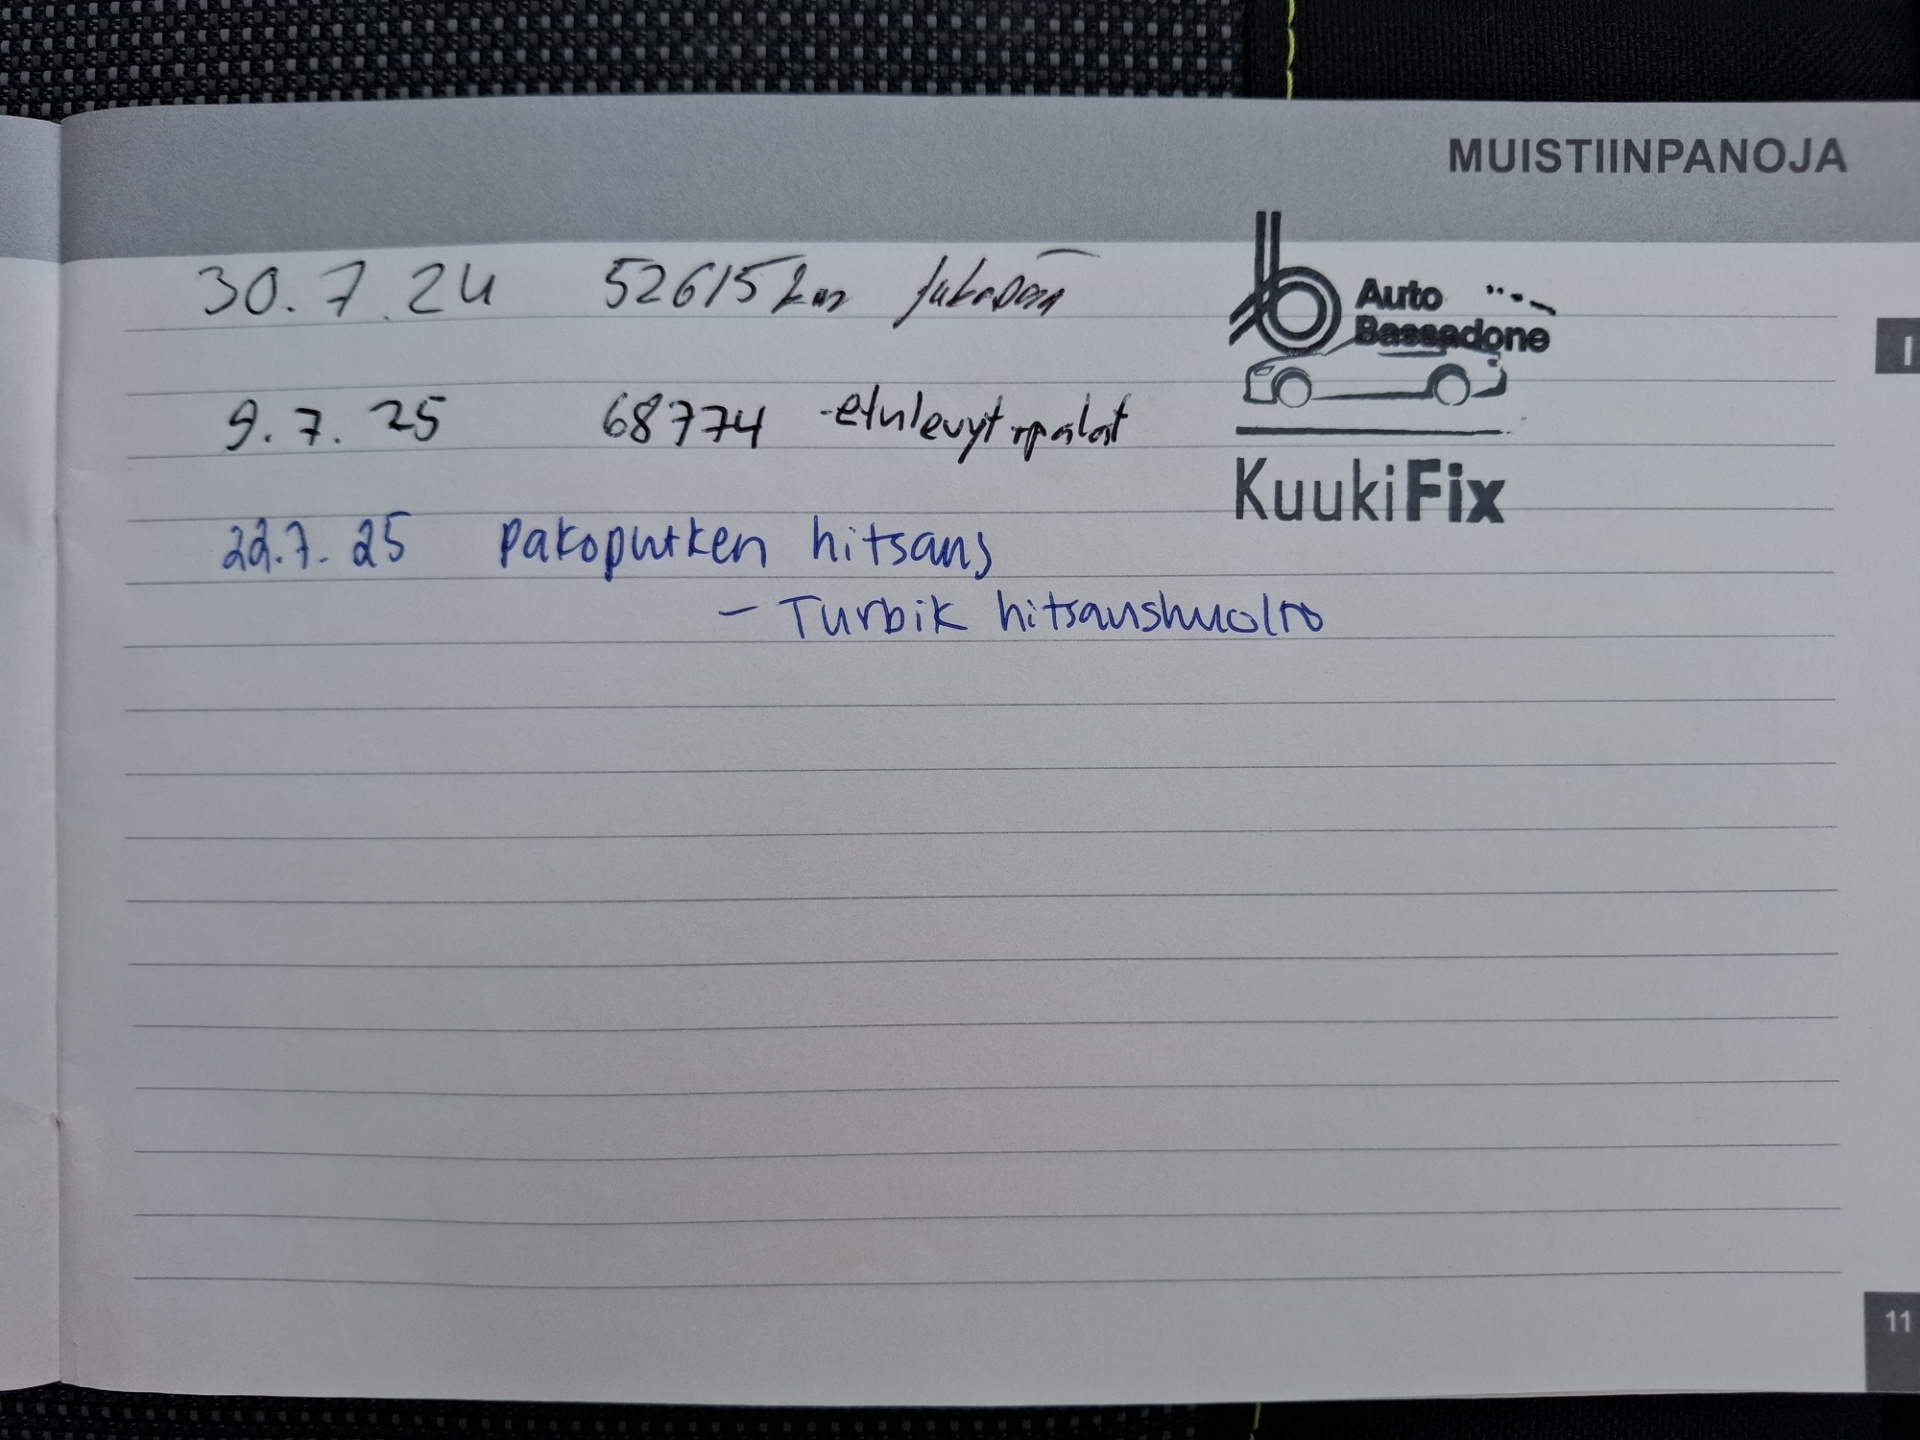 MUISTIINPANOJA
30.7.24 52615 km
Auto
Bassadone
9.7.25 68774 -etulevyt+palat
KuukiFix
22.7.25 Pakoputken hitsaus
- Turbik hitsaushuolto
I
11